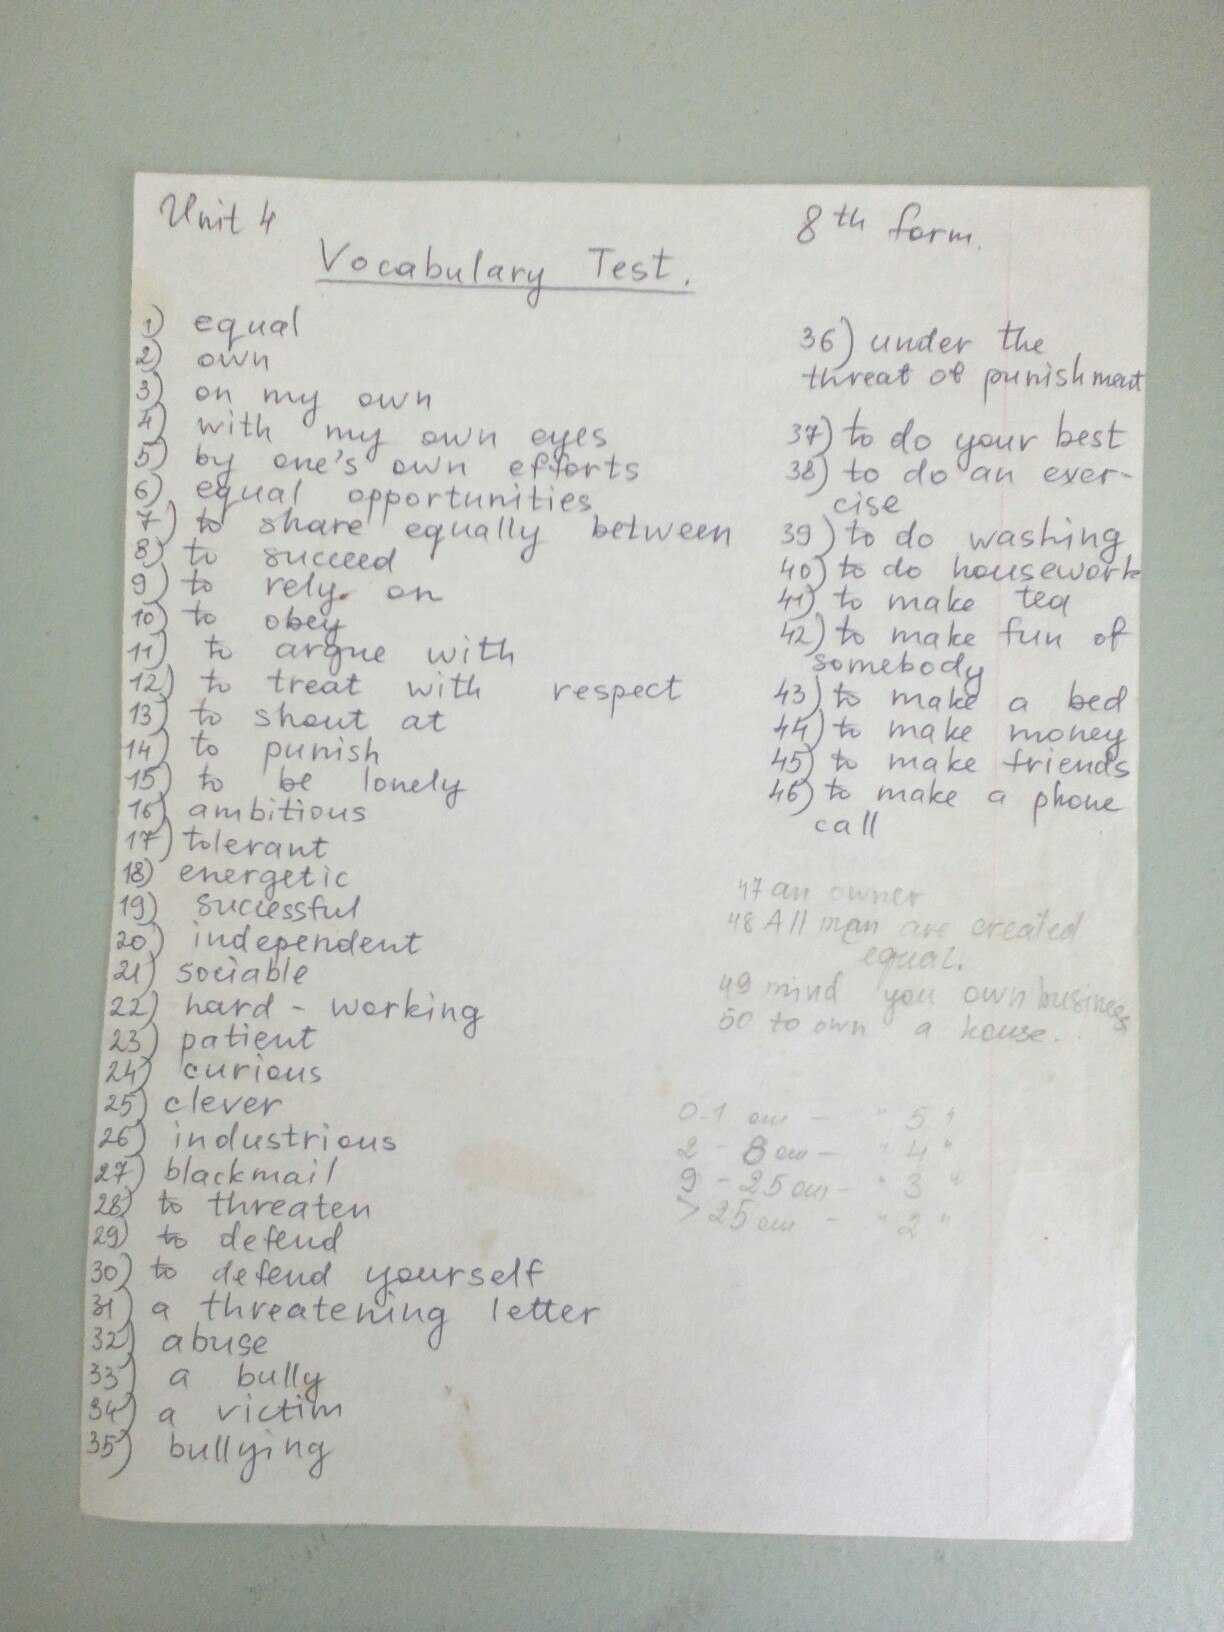 Unit 4
8th form.
Vocabulary Test.
1) equal
2) own
3) on my own
4) with my own eyes
5) by one's own efforts
6) equal opportunities
7) to share equally between
8) to succeed
9) to rely on
10) to obey
11) to argue with
12) to treat with respect
13) to shout at
14) to punish
15) to be lonely
16) ambitious
17) tolerant
18) energetic
19) successful
20) independent
21) sociable
22) hard - working
23) patient
24) curious
25) clever
26) industrious
27) blackmail
28) to threaten
29) to defend
30) to defend yourself
31) a threatening letter
32) abuse
33) a bully
34) a victim
35) bullying
36) under the
threat of punishment
37) to do your best
38) to do an exer-
cise
39) to do washing
40) to do housework
41) to make tea
42) to make fun of
somebody
43) to make a bed
44) to make money
45) to make friends
46) to make a phone
call
47 an owner
48 All man are created
equal.
49 mind you own business
50 to own a house.
0-1 ош - "5"
2 - 8 ош - "4"
9 - 25 ош - "3"
> 25 ош - "2"